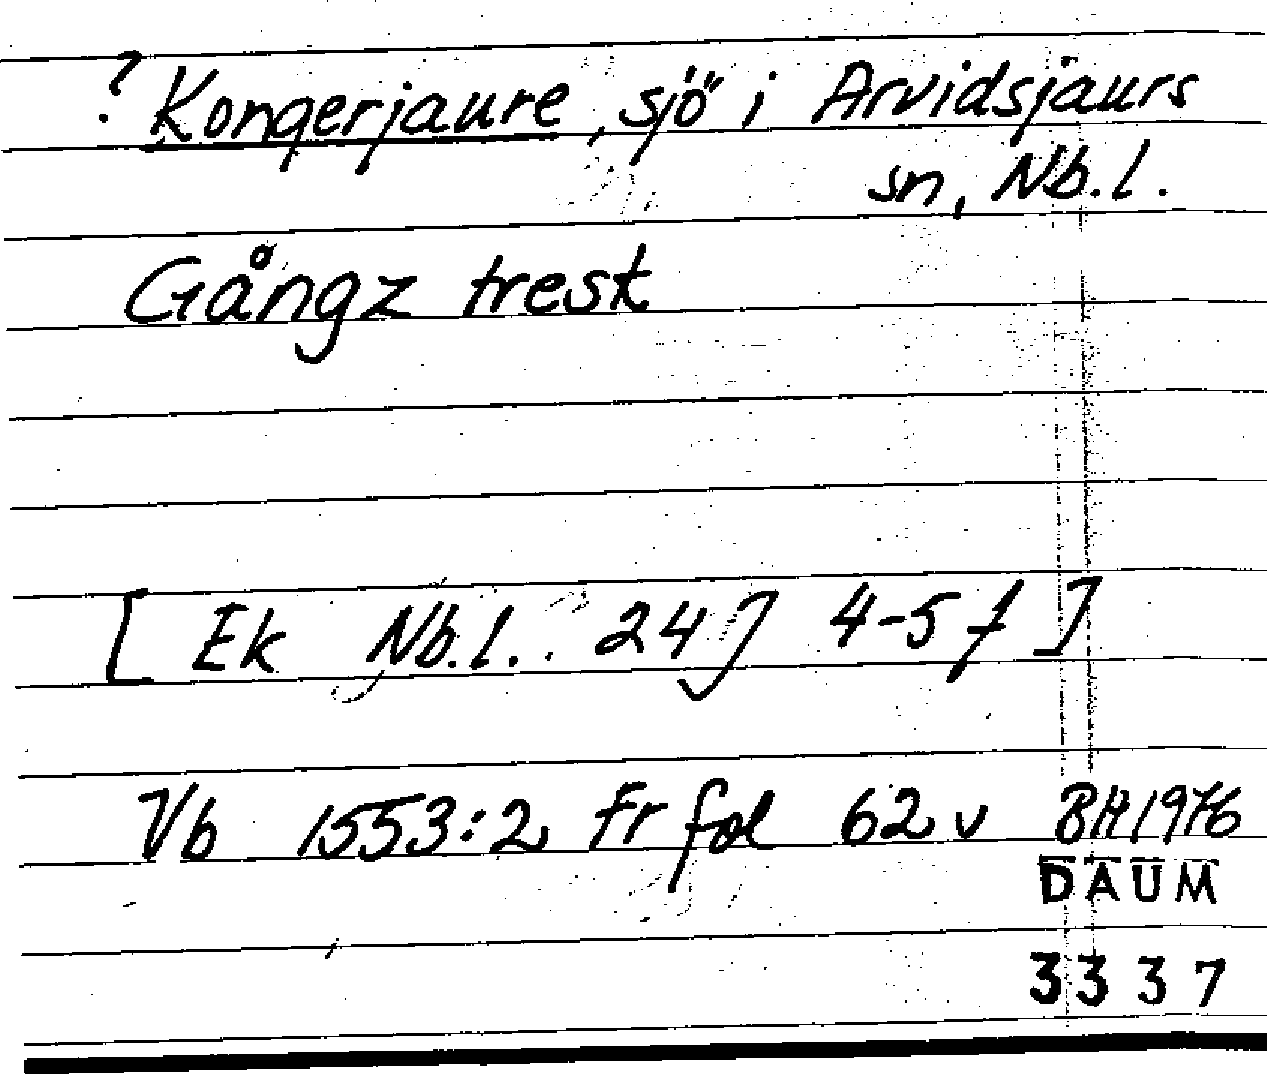 ? Kongerjaure, sjö i Arvidsjaurs
sn, Nb.l.
Gångz trest
[Ek Nb.l. 24J 4-5f]
Vb 1553:2 Fr fol 62 v BH 1976
DAUM
3337